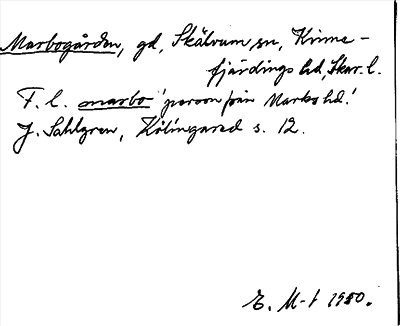 Marbogården, gd, Skälvum sn, Kinne-
fjärdings hd, Skar. l.
F. l. marbo 'person från Marks hd.'
J. Sahlgren, Kölingared s. 12.
E. M-t 1950.